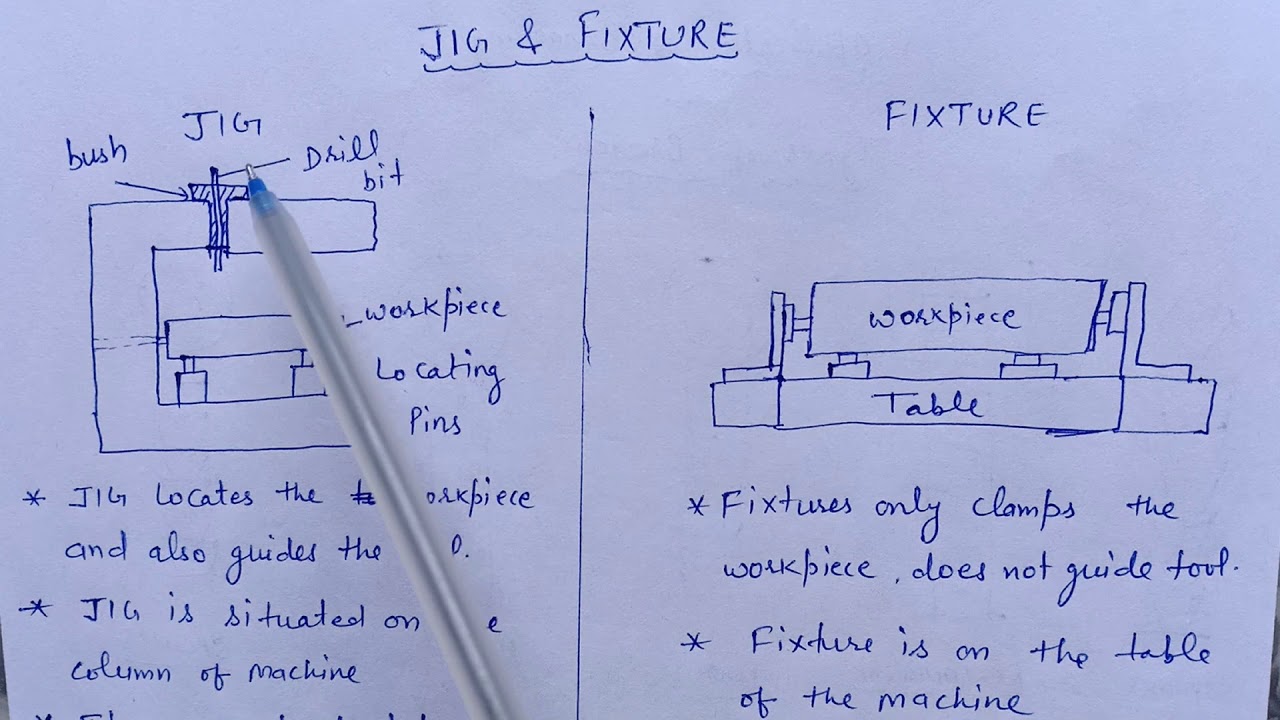 JIG & FIXTURE
JIG
bush
Drill
bit
workpiece
Locating
Pins
* JIG Locates the orkpiece
and also guides the
* JIG is situated on e
column of machine
FIXTURE
workpiece
Table
* Fixtures only clamps the
workpiece, does not guide tool.
* Fixture is on the table
of the machine